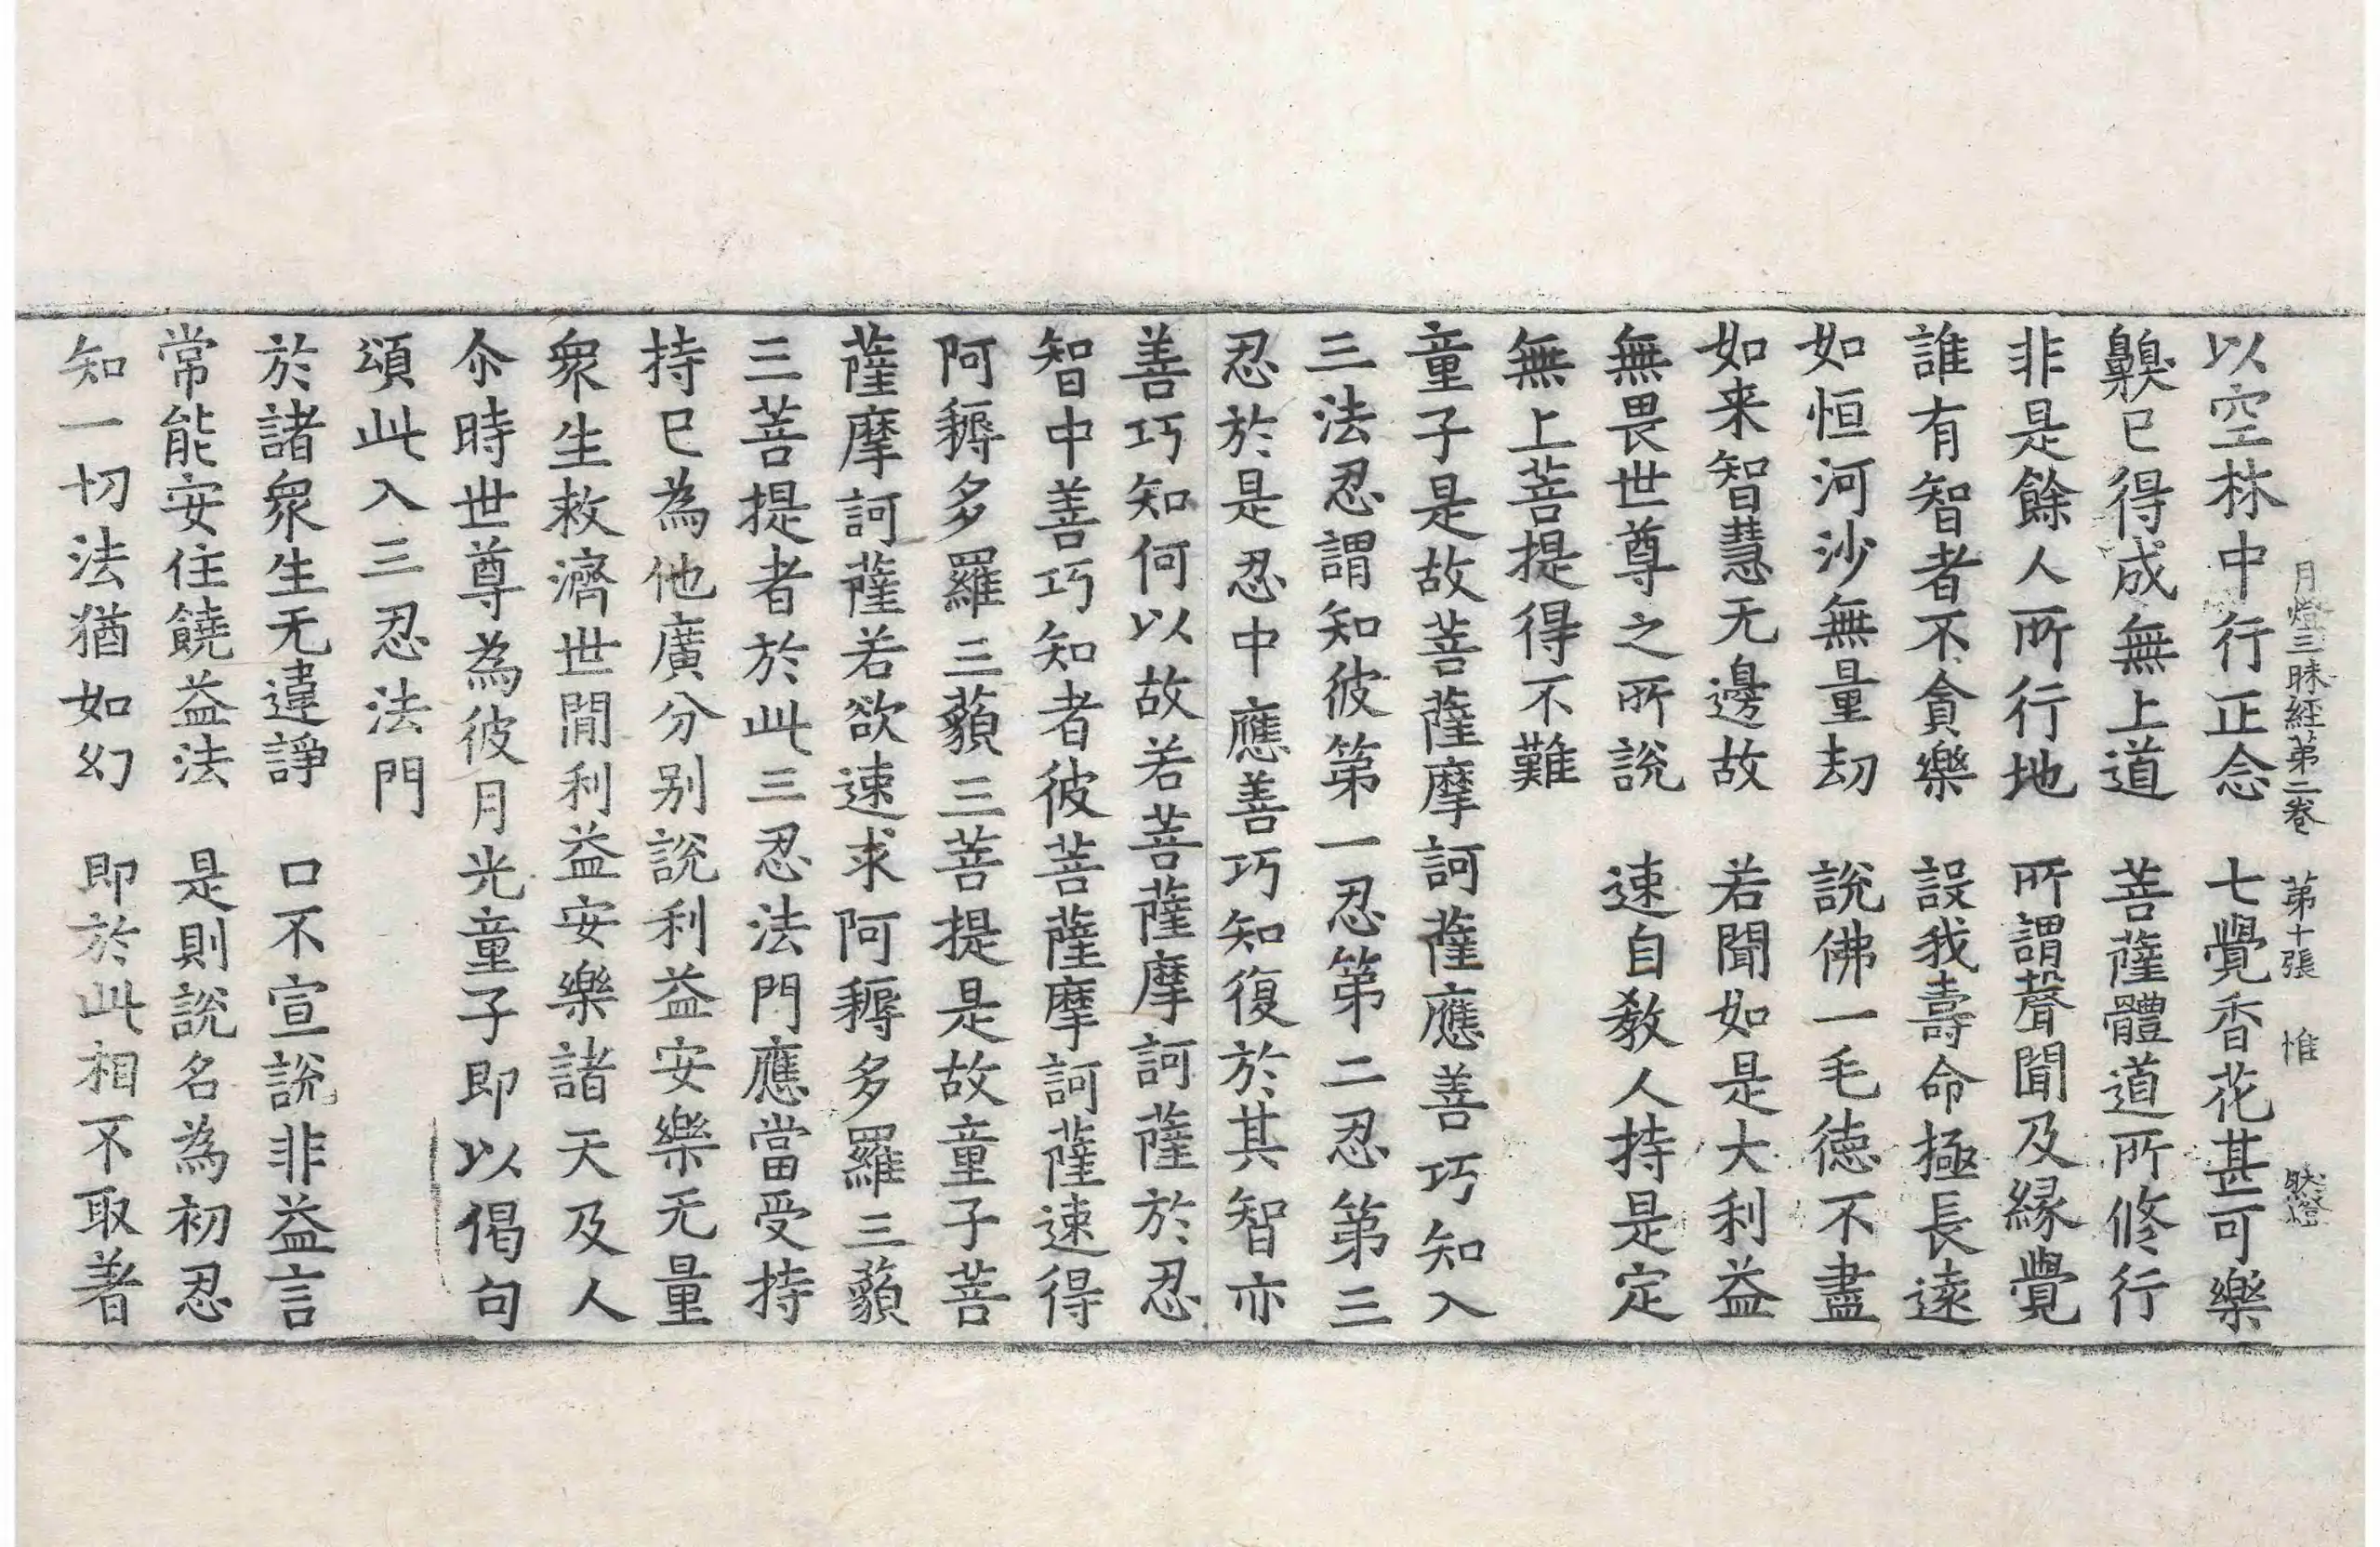 月燈三昧經第二卷 第十張 惟
以空林中行正念 七覺香花甚可樂
齅已得成無上道 菩薩體道所修行
非是餘人所行地 所謂聲聞及緣覺
誰有智者不貪樂 設我壽命極長遠
如恒河沙無量劫 說佛一毛德不盡
如来智慧无邊故 若聞如是大利益
無畏世尊之所說 速自教人持是定
無上菩提得不難
童子是故菩薩摩訶薩應善巧知入
三法忍謂知彼第一忍第二忍第三
忍於是忍中應善巧知復於其智亦
善巧知何以故若菩薩摩訶薩於忍
智中善巧知者彼菩薩摩訶薩速得
阿耨多羅三藐三菩提是故童子菩
薩摩訶薩若欲速求阿耨多羅三藐
三菩提者於此三忍法門應當受持
持已為他廣分别說利益安樂无量
衆生救濟世間利益安樂諸天及人
尒時世尊為彼月光童子即以偈句
頌此入三忍法門
於諸衆生无違諍 口不宣說非益言
常能安住饒益法 是則說名為初忍
知一切法猶如幻 即於此相不取著